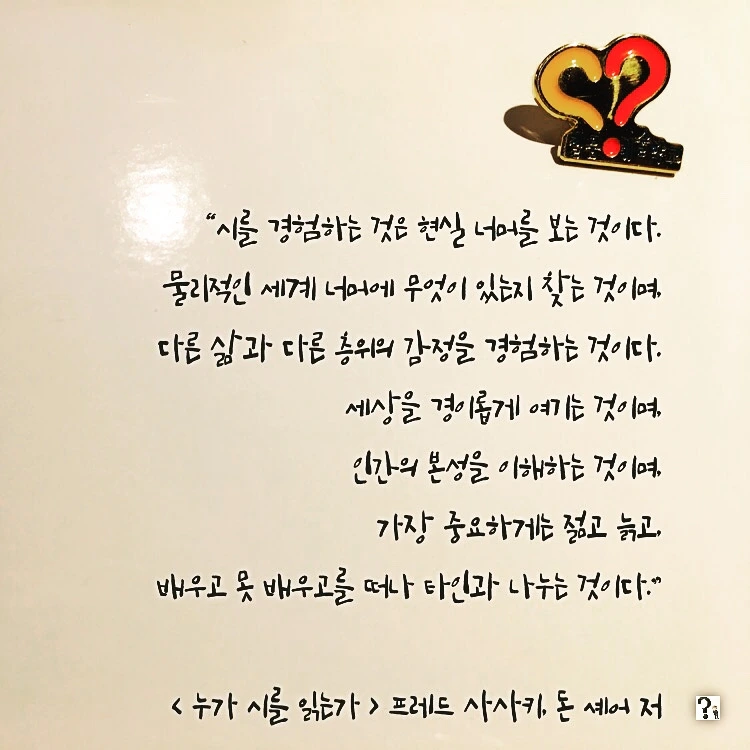 “시를 경험하는 것은 현실 너머를 보는 것이다.
물리적인 세계 너머에 무엇이 있는지 찾는 것이며,
다른 삶과 다른 층위의 감정을 경험하는 것이다.
세상을 경이롭게 여기는 것이며,
인간의 본성을 이해하는 것이며,
가장 중요하게는 젊고 늙고,
배우고 못 배우고를 떠나 타인과 나누는 것이다.”
< 누가 시를 읽는가 > 프레드 사사키, 돈 셰어 저
?